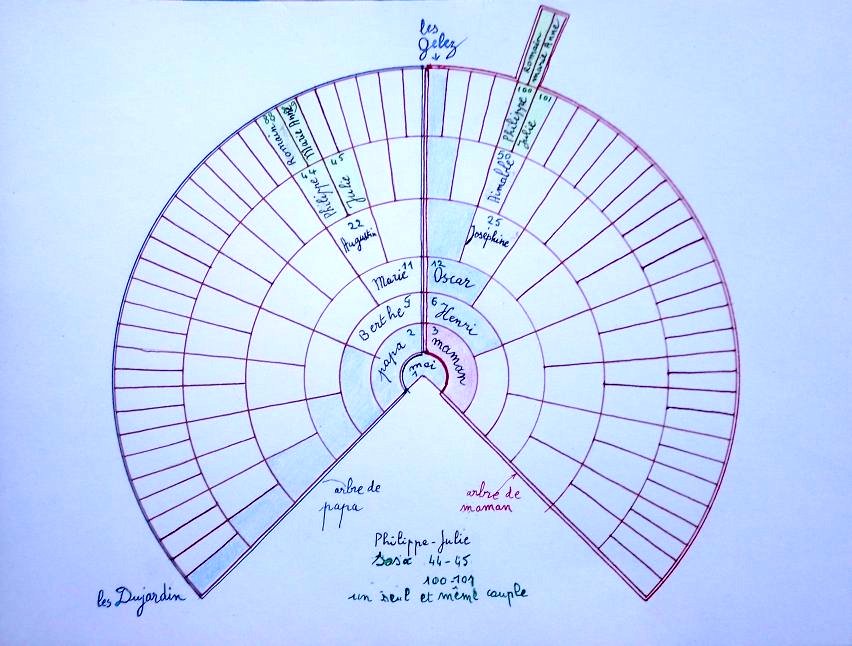 les
Gelez
Romain
Marie Anne
100
101
Philippe
Julie
88
Romain
Marie Anne
Philippe
Julie
Aimable
50
22
Augustin
25
Joséphine
Marie 11
12
Oscar
Berthe 5
6
Henri
papa 2
3
maman
moi
1
arbre de
papa
arbre de
maman
Philippe-Julie
Sosa 44-45
100-101
un seul et même couple
les Dujardin